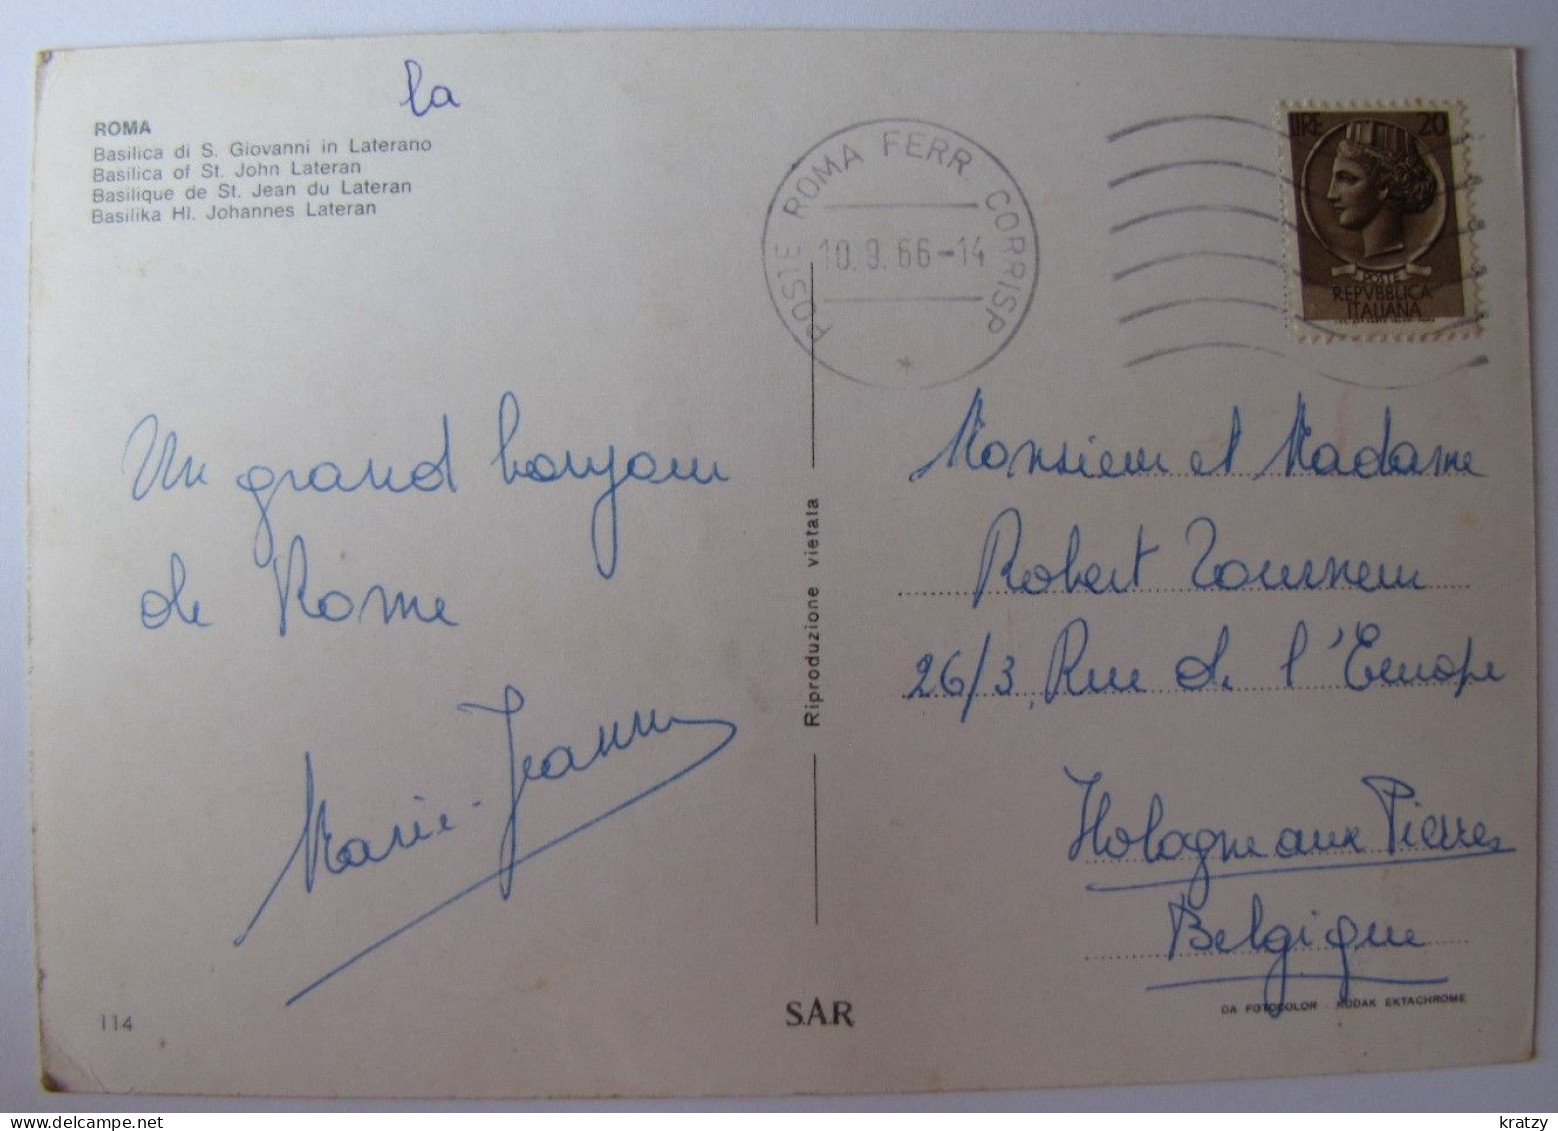 la
ROMA
Basilica di S. Giovanni in Laterano
Basilica of St. John Lateran
Basilique de St. Jean du Lateran
Basilika Hl. Johannes Lateran
POSTE ROMA FERR. CORRISP
10.9.66-14
LIRE 20
POSTE
REPVBBLICA
ITALIANA
Un grand bonjour
de Rome
Marie-Jeanne
Riproduzione vietata
Monsieur et Madame
Robert Tourneur
26/3, Rue de l'Europe
Hologne aux Pierres
Belgique
114
SAR
DA FOTOCOLOR - KODAK EKTACHROME
kratzy